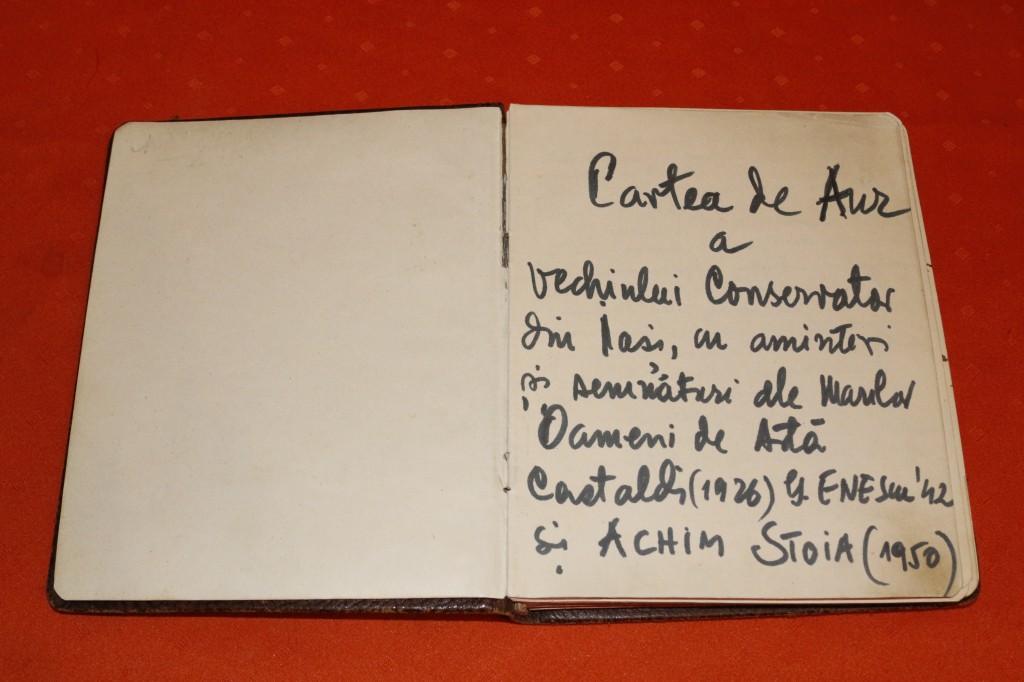 Cartea de Aur
a
vechiului Conservator
din Iași, cu amintiri
și semnături ale Marilor
Oameni de Artă
Castaldi (1926) G ENEScu '42
și ACHIM STOIA (1950)